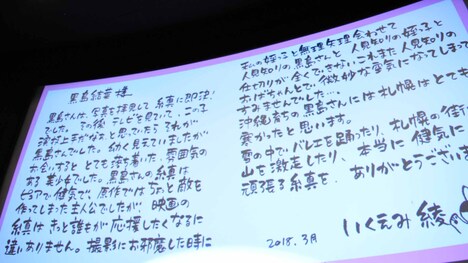 黒島結菜様
黒島さんは、写真を拝見して糸真に即決
でした。その後テレビを見ていて、この子
演が上手だなぁと思っていたらそれが
黒島さんでした。幼く見えていましたが
お会いするととても落ち着いた雰囲気の
ある美少女でした。黒島さんの糸真は
ピュアで健気で、原作ではちょっと敵を
作ってしまった主人公でしたが、映画の
糸真はきっと誰もが応援したくなるに
違いありません。撮影にお邪魔した時に
私の姪っ子と無理矢理会わせて
人見知りの黒島さんと人見知りの姪っ子と
仕切りが全くできないこれまた人見知りの
おばちゃんとで、微妙な空気になってしまって
すみませんでした…。
沖縄育ちの黒島さんには札幌はとても
寒かったと思います。
雪の中でバレエを踊ったり、札幌の街
山を激走したり、本当に健気に
頑張る糸真を、ありがとうございま
2018.3月
いくえみ綾